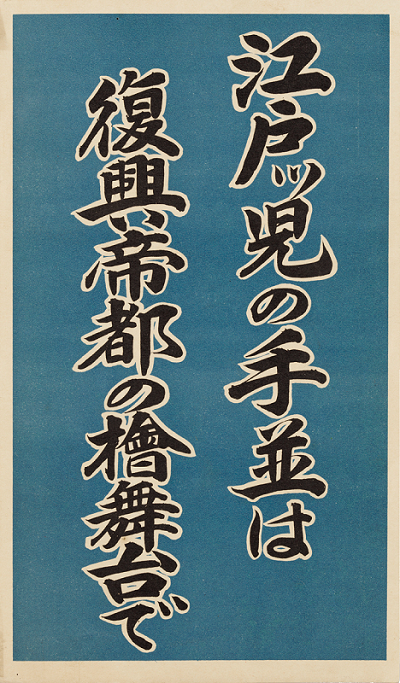 江戸ッ児の手並は
復興帝都の檜舞台で